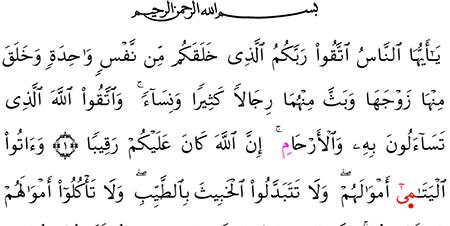 بسم الله الرحمن الرحيم
يَـٰٓأَيُّهَا ٱلنَّاسُ ٱتَّقُوا۟ رَبَّكُمُ ٱلَّذِى خَلَقَكُم مِّن نَّفْسٍ وَٰحِدَةٍ وَخَلَقَ
مِنْهَا زَوْجَهَا وَبَثَّ مِنْهُمَا رِجَالًا كَثِيرًا وَنِسَآءً ۚ وَٱتَّقُوا۟ ٱللَّهَ ٱلَّذِى
تَسَآءَلُونَ بِهِۦ وَٱلْأَرْحَامِ ۚ إِنَّ ٱللَّهَ كَانَ عَلَيْكُمْ رَقِيبًا ﴿١﴾ وَءَاتُوا۟
ٱلْيَتَـٰمِىٓ أَمْوَٰلَهُمْ ۖ وَلَا تَتَبَدَّلُوا۟ ٱلْخَبِيثَ بِٱلطَّيِّبِ ۖ وَلَا تَأْكُلُوٓا۟ أَمْوَٰلَهُمْ